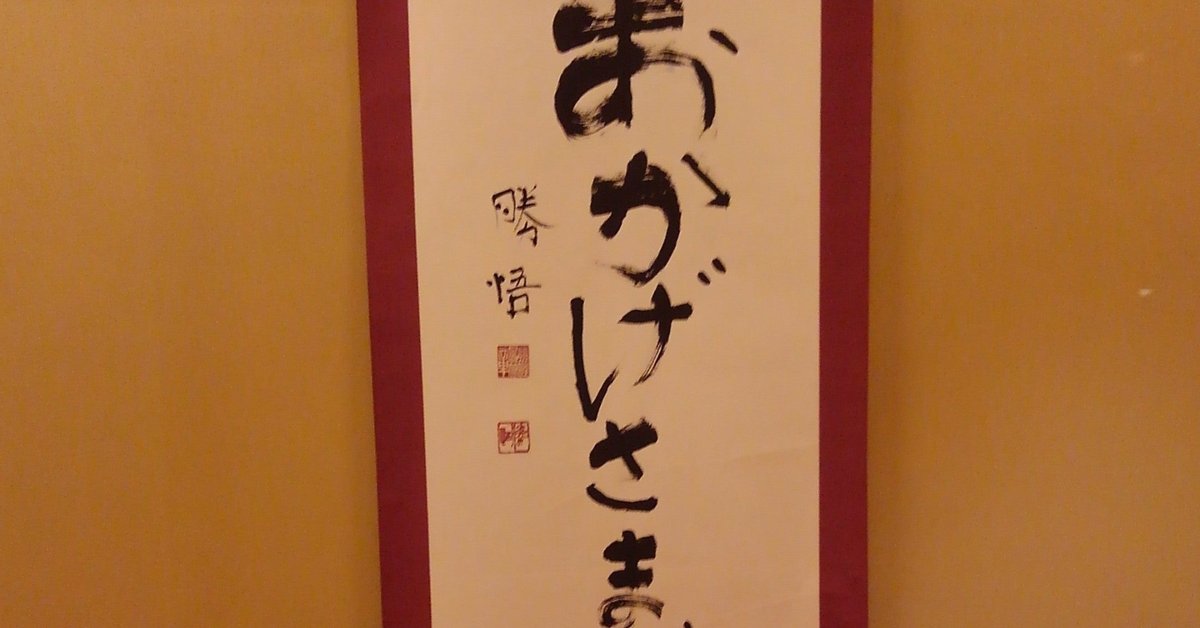 おかげさま
勝悟